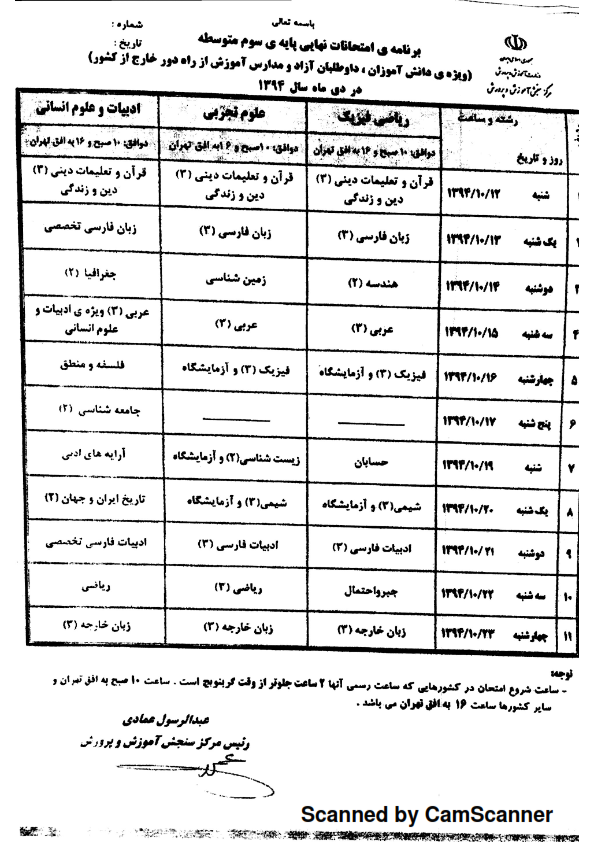 باسمه تعالی
شماره :
تاریخ :
برنامه ی امتحانات نهایی پایه ی سوم متوسطه
(ویژه ی دانش آموزان ، داوطلبان آزاد و مدارس آموزش از راه دور خارج از کشور)
در دی ماه سال ۱۳۹۴
مرکز سنجش آموزش و پرورش
رشته و ساعت
روز و تاریخ
ریاضی فیزیک
علوم تجربی
ادبیات و علوم انسانی
دوافق: ۱۰ صبح و ۱۶ به افق تهران
دوافق: ۱۰ صبح و ۱۶ به افق تهران
دوافق: ۱۰ صبح و ۱۶ به افق تهران
شنبه ۱۳۹۴/۱۰/۱۲ قرآن و تعلیمات دینی (۳) دین و زندگی قرآن و تعلیمات دینی (۳) دین و زندگی قرآن و تعلیمات دینی (۳) دین و زندگی
یک شنبه ۱۳۹۴/۱۰/۱۳ زبان فارسی (۳) زبان فارسی (۳) زبان فارسی تخصصی
دوشنبه ۱۳۹۴/۱۰/۱۴ هندسه (۲) زمین شناسی جغرافیا (۲)
۴ سه شنبه ۱۳۹۴/۱۰/۱۵ عربی (۳) عربی (۳) عربی (۳) ویژه ی ادبیات و علوم انسانی
۵ چهارشنبه ۱۳۹۴/۱۰/۱۶ فیزیک (۳) و آزمایشگاه فیزیک (۳) و آزمایشگاه فلسفه و منطق
۶ پنج شنبه ۱۳۹۴/۱۰/۱۷ جامعه شناسی (۲)
۷ شنبه ۱۳۹۴/۱۰/۱۹ حسابان زیست شناسی(۲) و آزمایشگاه آرایه های ادبی
۸ یک شنبه ۱۳۹۴/۱۰/۲۰ شیمی(۳) و آزمایشگاه شیمی(۳) و آزمایشگاه تاریخ ایران و جهان (۲)
۹ دوشنبه ۱۳۹۴/۱۰/۲۱ ادبیات فارسی (۳) ادبیات فارسی (۳) ادبیات فارسی تخصصی
۱۰ سه شنبه ۱۳۹۴/۱۰/۲۲ جبرواحتمال ریاضی (۳) ریاضی
۱۱ چهارشنبه ۱۳۹۴/۱۰/۲۳ زبان خارجه (۳) زبان خارجه (۳) زبان خارجه (۳)
توجه:
- ساعت شروع امتحان در کشورهایی که ساعت رسمی آنها ۲ ساعت جلوتر از وقت گرینویچ است . ساعت ۱۰ صبح به افق تهران و
سایر کشورها ساعت ۱۶ به افق تهران می باشد .
عبدالرسول عمادی
رئیس مرکز سنجش آموزش و پرورش
Scanned by CamScanner